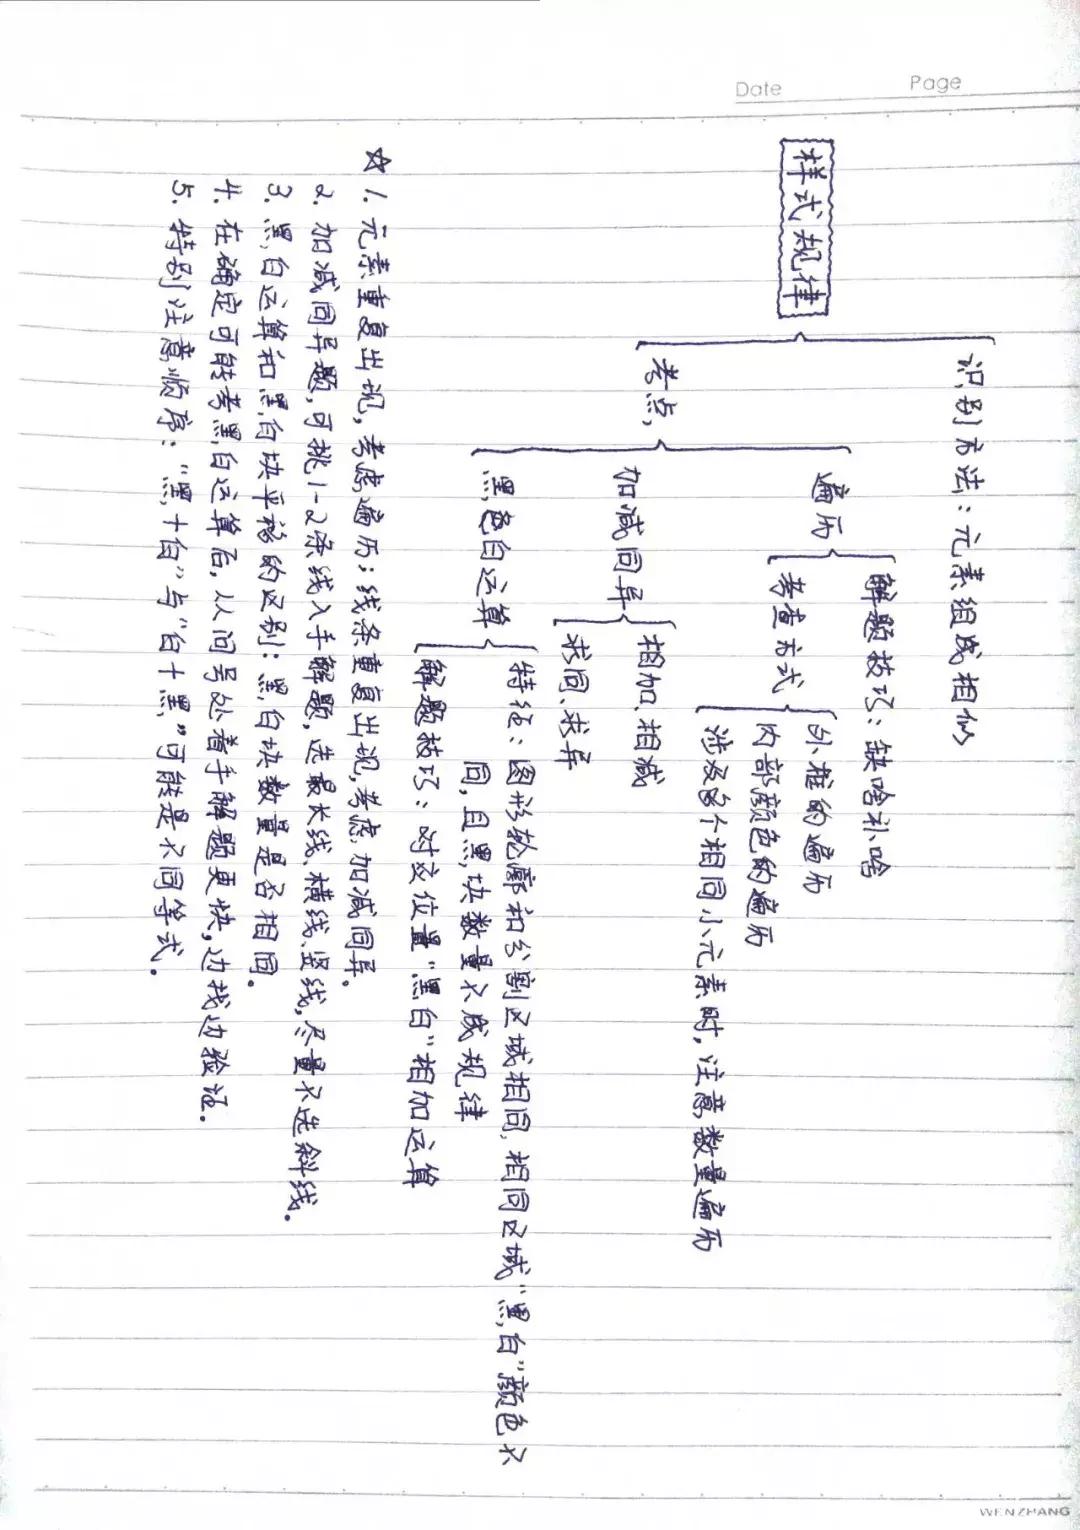 Date
Page
样式规律
识别方法：元素组成相似
考点
遍历
解题技巧：缺啥补啥
考查方式
外框的遍历
内部颜色的遍历
涉及多个相同小元素时，注意数量遍历
加减同异
相加、相减
求同、求异
黑色白运算
特征：图形轮廓和分割区域相同，相同区域“黑，白”颜色不
同，且黑，块数量不成规律
解题技巧：对应位置“黑白”相加运算
☆ 1. 元素重复出现，考虑遍历；线条重复出现，考虑加减同异。
2. 加减同异题，可挑1-2条线入手解题，选最长线、横线、竖线，尽量不选斜线。
3. 黑，白运算和黑，白块平移的区别：黑，白块数量是否相同。
4. 在确定可能考黑，白运算后，从问号处着手解题更快，边找边验证。
5. 特别注意顺序：“黑，+白”与“白+黑，”可能是不同等式。
WENZHANG